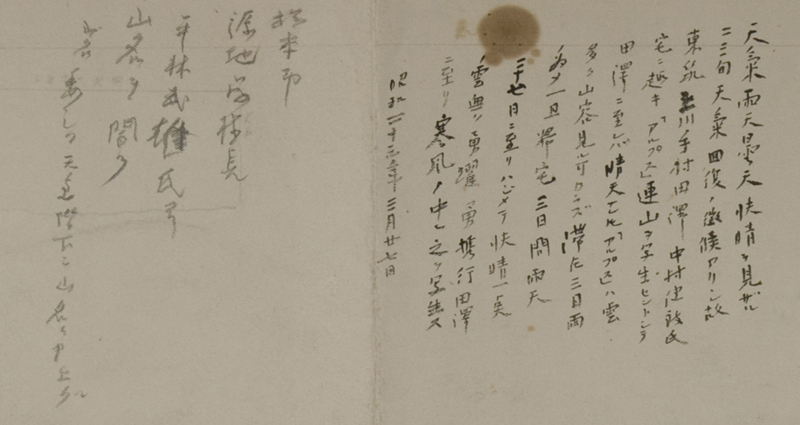 天気雨天曇天快晴ヲ見ザル
二三旬天気回復ノ徴候アリシ故
東筑 川手村田澤中村 氏
宅ニ趣キ「アルプス」連山ヲ写生セントシテ
田澤ニ至レバ晴天ナレ「アルプス」ハ雲
多ク山容見ル可カラズ滞在三日雨
為メ一旦帰宅三日間雨天
二十七日ニ至リハジメテ快晴一点
ノ雲無ク勇躍 携行田澤
ニ至リ寒風ノ中ニ之ヲ写生ス
昭和二十三年三月廿七日
松本市
源地 校長
平林武雄氏
山名ヲ聞ク
天皇陛下ニ山名ヲ申上